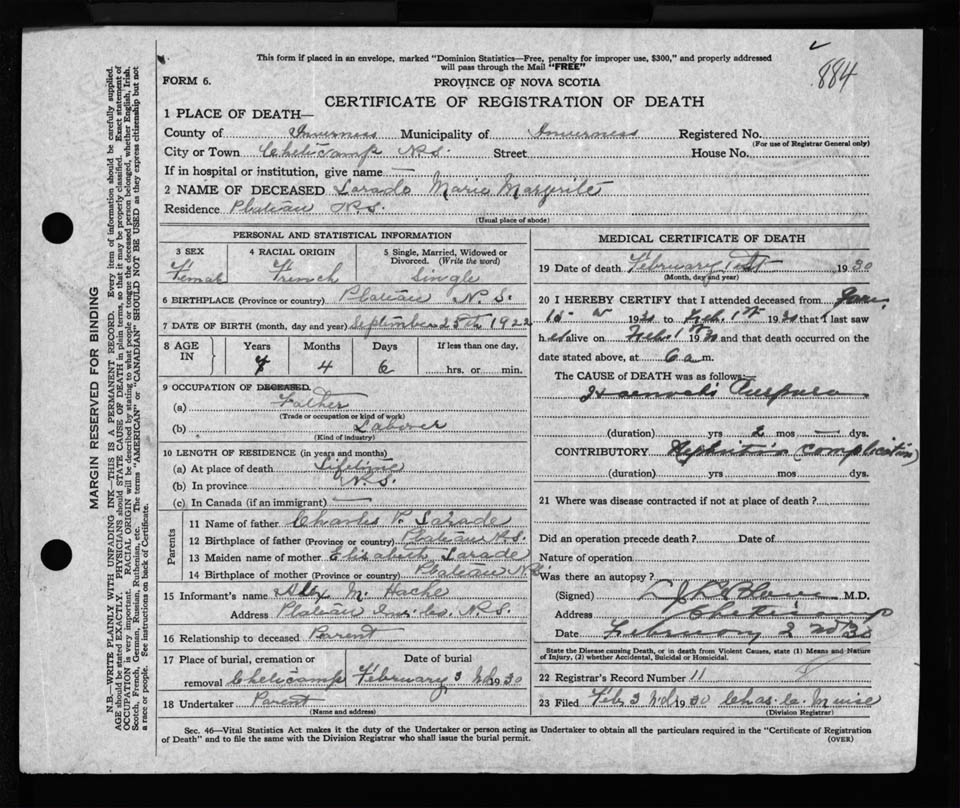 This form if placed in an envelope, marked "Dominion Statistics—Free, penalty for improper use, $300," and properly addressed
will pass through the Mail "FREE"
884
FORM 6.
PROVINCE OF NOVA SCOTIA
CERTIFICATE OF REGISTRATION OF DEATH
1 PLACE OF DEATH—
County of Inverness Municipality of Inverness Registered No.
(For use of Registrar General only)
City or Town Cheticamp N.S. Street House No.
If in hospital or institution, give name —
2 NAME OF DECEASED Larade Marie Margrite
Residence Plateau N.S.
(Usual place of abode)
PERSONAL AND STATISTICAL INFORMATION
3 SEX 4 RACIAL ORIGIN 5 Single, Married, Widowed or
Divorced. (Write the word)
Female French Single
6 BIRTHPLACE (Province or country) Plateau N.S.
7 DATE OF BIRTH (month, day and year) September 25th 1922
8 AGE IN Years Months Days If less than one day,
7 4 6 hrs. or min.
9 OCCUPATION OF DECEASED.
(a) Father
(Trade or occupation or kind of work)
(b) Laborer
(Kind of industry)
10 LENGTH OF RESIDENCE (in years and months)
(a) At place of death Lifetime
(b) In province N.S.
(c) In Canada (if an immigrant) —
Parents
11 Name of father Charles P. Larade
12 Birthplace of father (Province or country) Plateau N.S.
13 Maiden name of mother Elisabeth Larade
14 Birthplace of mother (Province or country) Plateau N.S.
15 Informant's name Alex M. Hache
Address Plateau Inv. Co. N.S.
16 Relationship to deceased Parent
17 Place of burial, cremation or Date of burial
removal Cheticamp February 3 rd 1930
18 Undertaker Parent
(Name and address)
MEDICAL CERTIFICATE OF DEATH
19 Date of death February 1st 1930
(Month, day and year)
20 I HEREBY CERTIFY that I attended deceased from Jan.
15 1930 to Feb. 1st 1930 that I last saw
her alive on Feb. 1st 30 and that death occurred on the
date stated above, at 6 a m.
The CAUSE OF DEATH was as follows:—
Purpura
(duration) yrs 2 mos — dys.
CONTRIBUTORY Nephritis (complication)
(duration) yrs mos dys.
21 Where was disease contracted if not at place of death?
Did an operation precede death? Date of
Nature of operation
Was there an autopsy?
(Signed) M.D.
Address Cheticamp
Date February 2nd 30
State the Disease causing Death, or in death from Violent Causes, state (1) Means and Nature
of Injury, (2) whether Accidental, Suicidal or Homicidal.
22 Registrar's Record Number 11
23 Filed Feb 3rd 1930 Chas. C. Muise
(Division Registrar)
Sec. 46—Vital Statistics Act makes it the duty of the Undertaker or person acting as Undertaker to obtain all the particulars required in the "Certificate of Registration
of Death" and to file the same with the Division Registrar who shall issue the burial permit. (OVER)
MARGIN RESERVED FOR BINDING
N.B.—WRITE PLAINLY WITH UNFADING INK—THIS IS A PERMANENT RECORD. Every item of information should be carefully supplied.
AGE should be stated EXACTLY. PHYSICIANS should STATE CAUSE OF DEATH in plain terms, so that it may be properly classified. Exact statement of
OCCUPATION is very important. RACIAL ORIGIN will be described by stating to what people or tongue the deceased person belonged, whether English, Irish,
Scotch, French, German, Russian, Ruthenian, etc. The terms "AMERICAN" or "CANADIAN" SHOULD NOT BE USED as they express citizenship but not
a race or people. See instructions on back of Certificate.